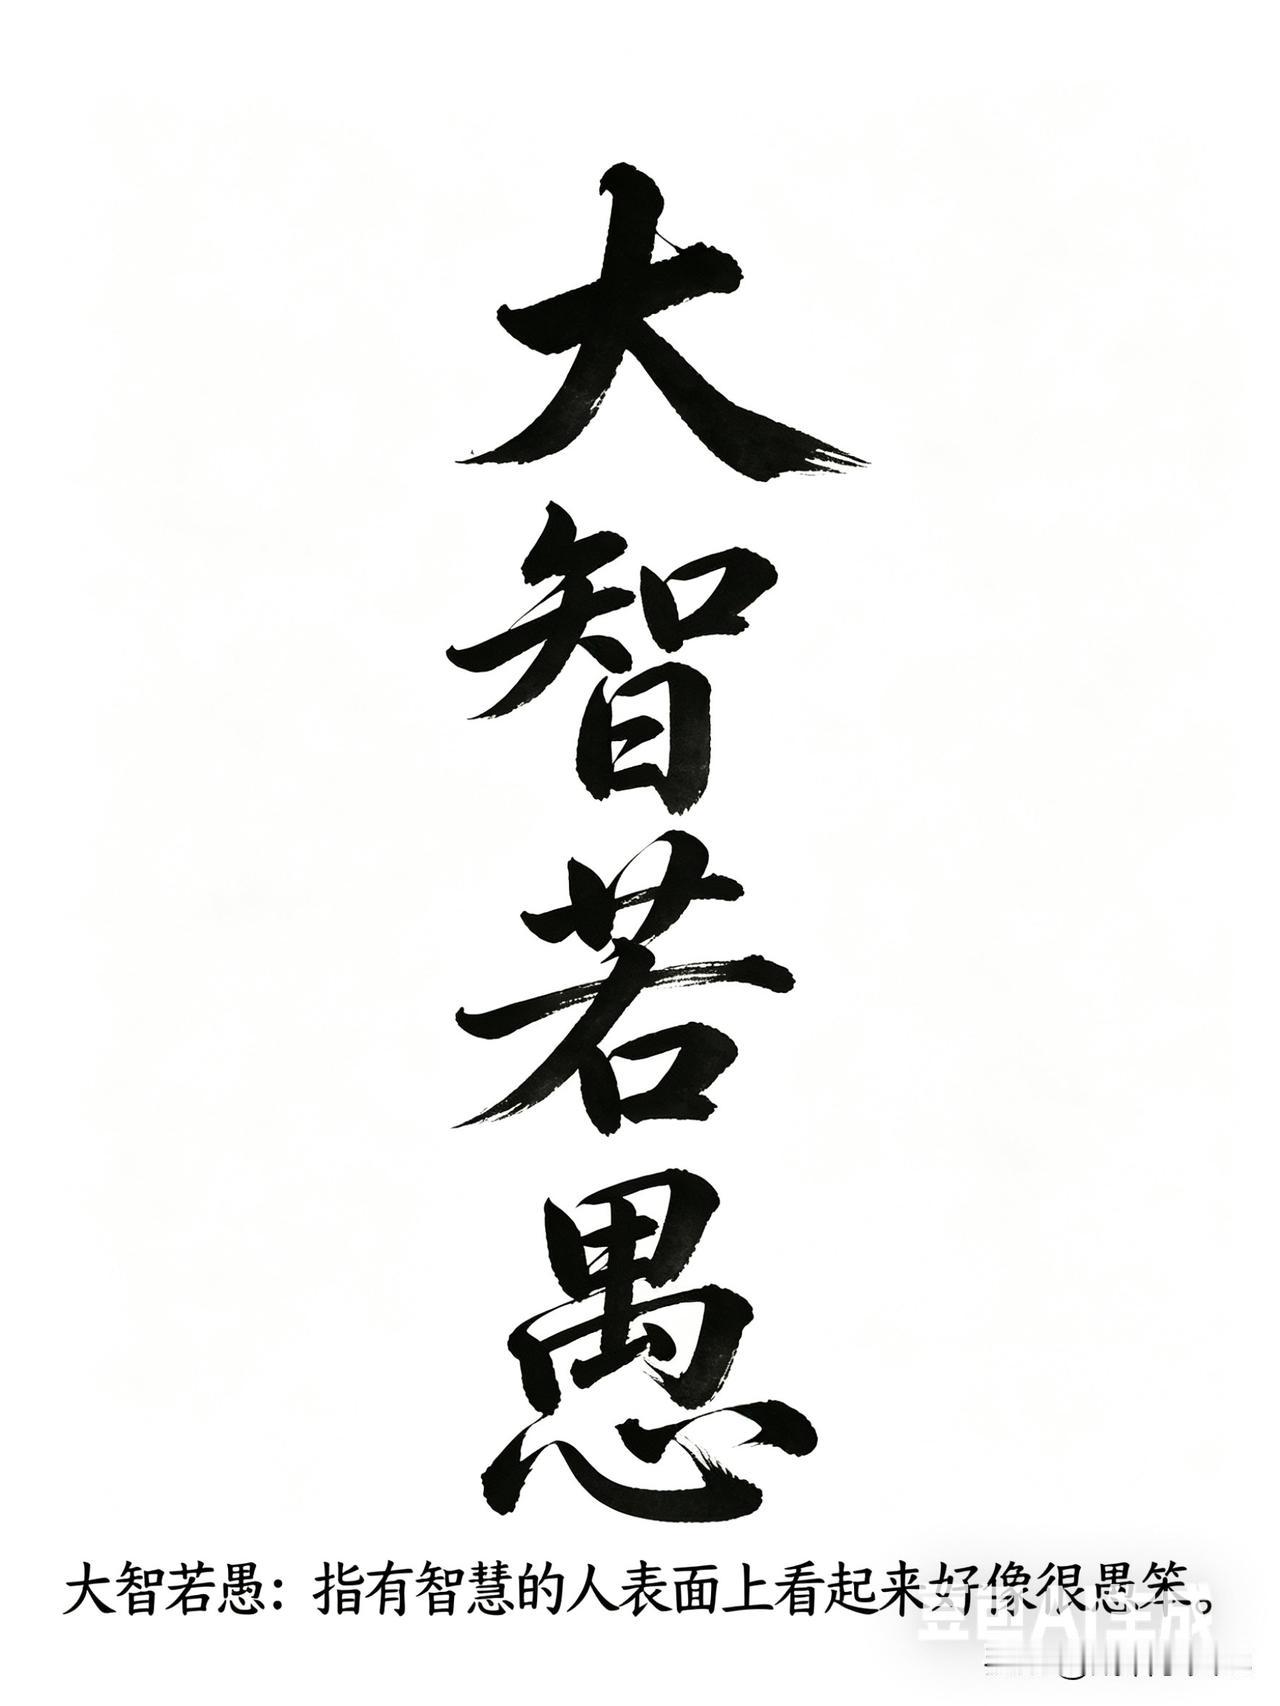 大智若愚
大智若愚：指有智慧的人表面上看起来好像很愚笨。
豆包AI生成